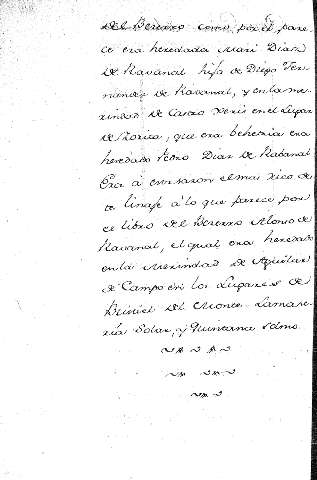 del Becerro como por el pare-
ce era heredada Mari Diaz
de Ravanal hija de Diego Fer-
nandez de Ravanal, y en la me-
rindad de Castro Xeris en el Lugar
de, que era behetria era
heredado Pedro Diaz de Rabanal
Era á esta razon el mas rico de
te linaje a lo que parece por es-
te libro del Becerro Alonso de
Ravanal, el qual era heredado
en la Merindad de Aguilar
de Campo en los Lugares de
del Monte, Lama-
Solar, y Quintana